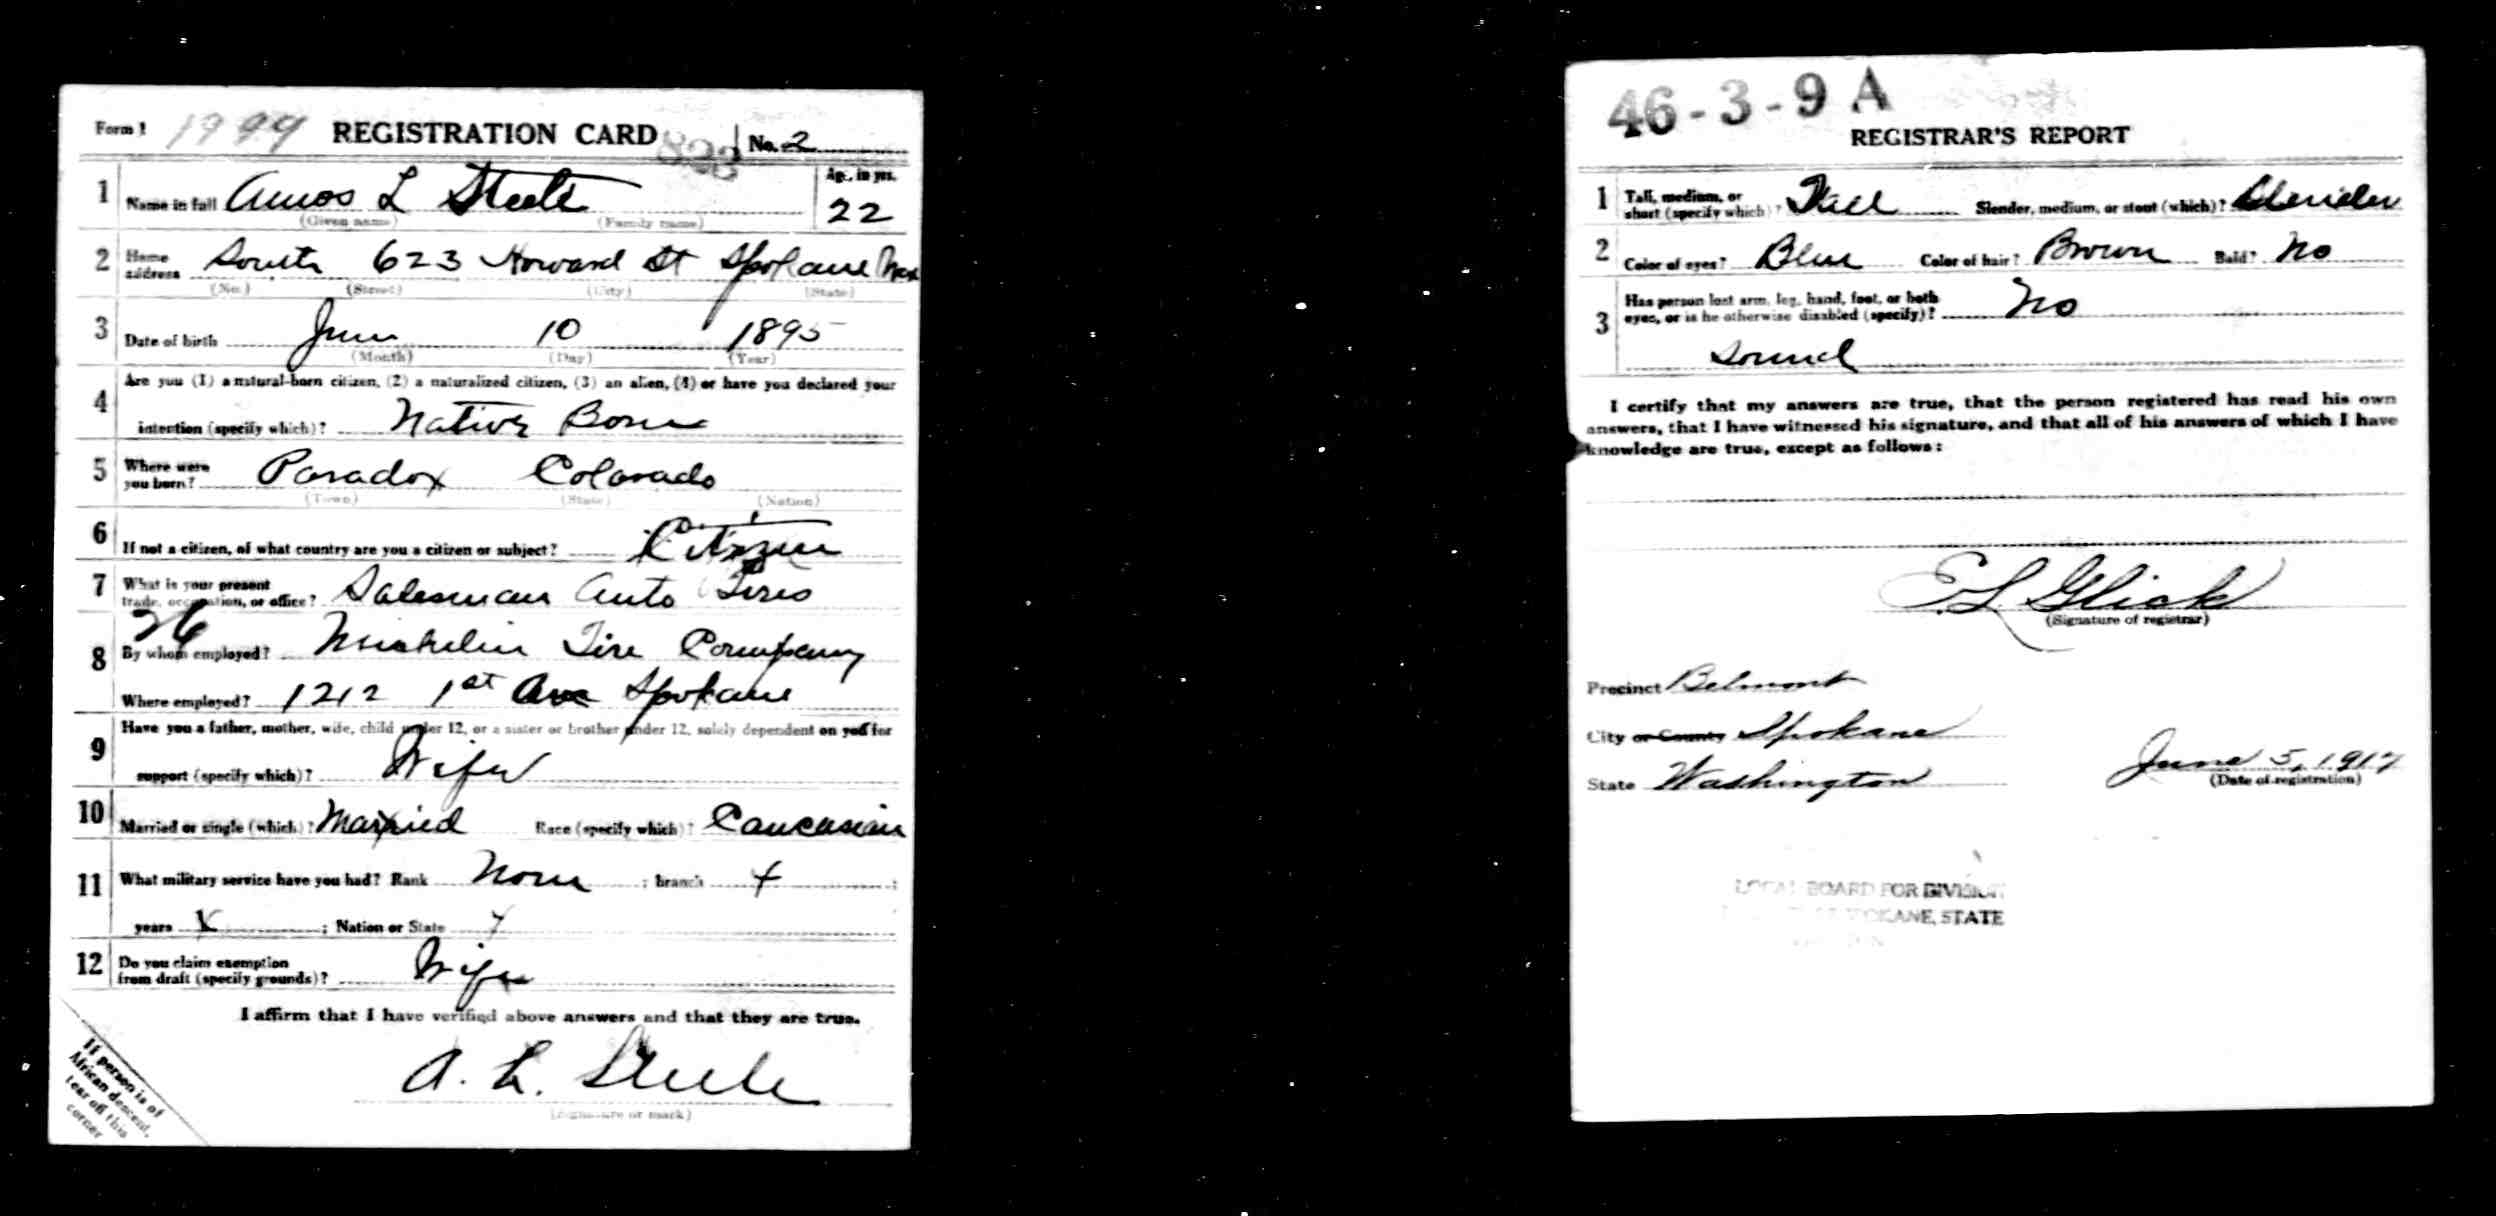 Form 1 1999 REGISTRATION CARD 823 No. 2
1 Name in full Amos L Steele Age, in yrs. 22
(Given name) (Family name)
2 Home address South 623 Howard St Spokane Wn
(No.) (Street) (City) (State)
3 Date of birth June 10 1895
(Month) (Day) (Year)
4 Are you (1) a natural-born citizen, (2) a naturalized citizen, (3) an alien, (4) or have you declared your
intention (specify which)? Native Born
5 Where were you born? Paradox Colorado
(Town) (State) (Nation)
6 If not a citizen, of what country are you a citizen or subject? Citizen
7 What is your present trade, occupation, or office? Salesman Auto Tires
26
8 By whom employed? Michelin Tire Company
Where employed? 1212 1st Ave Spokane
9 Have you a father, mother, wife, child under 12, or a sister or brother under 12, solely dependent on you for
support (specify which)? Wife
10 Married or single (which)? Married Race (specify which)? Caucasian
11 What military service have you had? Rank None ; branch x ;
years x ; Nation or State x
12 Do you claim exemption from draft (specify grounds)? Wife
I affirm that I have verified above answers and that they are true.
A. L. Steele
(Signature or mark)
If person is of
African descent,
tear off this
corner
46-3-9 A
REGISTRAR'S REPORT
1 Tall, medium, or short (specify which)? Tall Slender, medium, or stout (which)? Slender
2 Color of eyes? Blue Color of hair? Brown Bald? No
3 Has person lost arm, leg, hand, foot, or both
eyes, or is he otherwise disabled (specify)? No
Sound
I certify that my answers are true, that the person registered has read his own
answers, that I have witnessed his signature, and that all of his answers of which I have
knowledge are true, except as follows:
E. L. Glick
(Signature of registrar)
Precinct Belmont
City or County Spokane
State Washington
June 5, 1917
(Date of registration)
LOCAL BOARD FOR DIVISION
SPOKANE, STATE